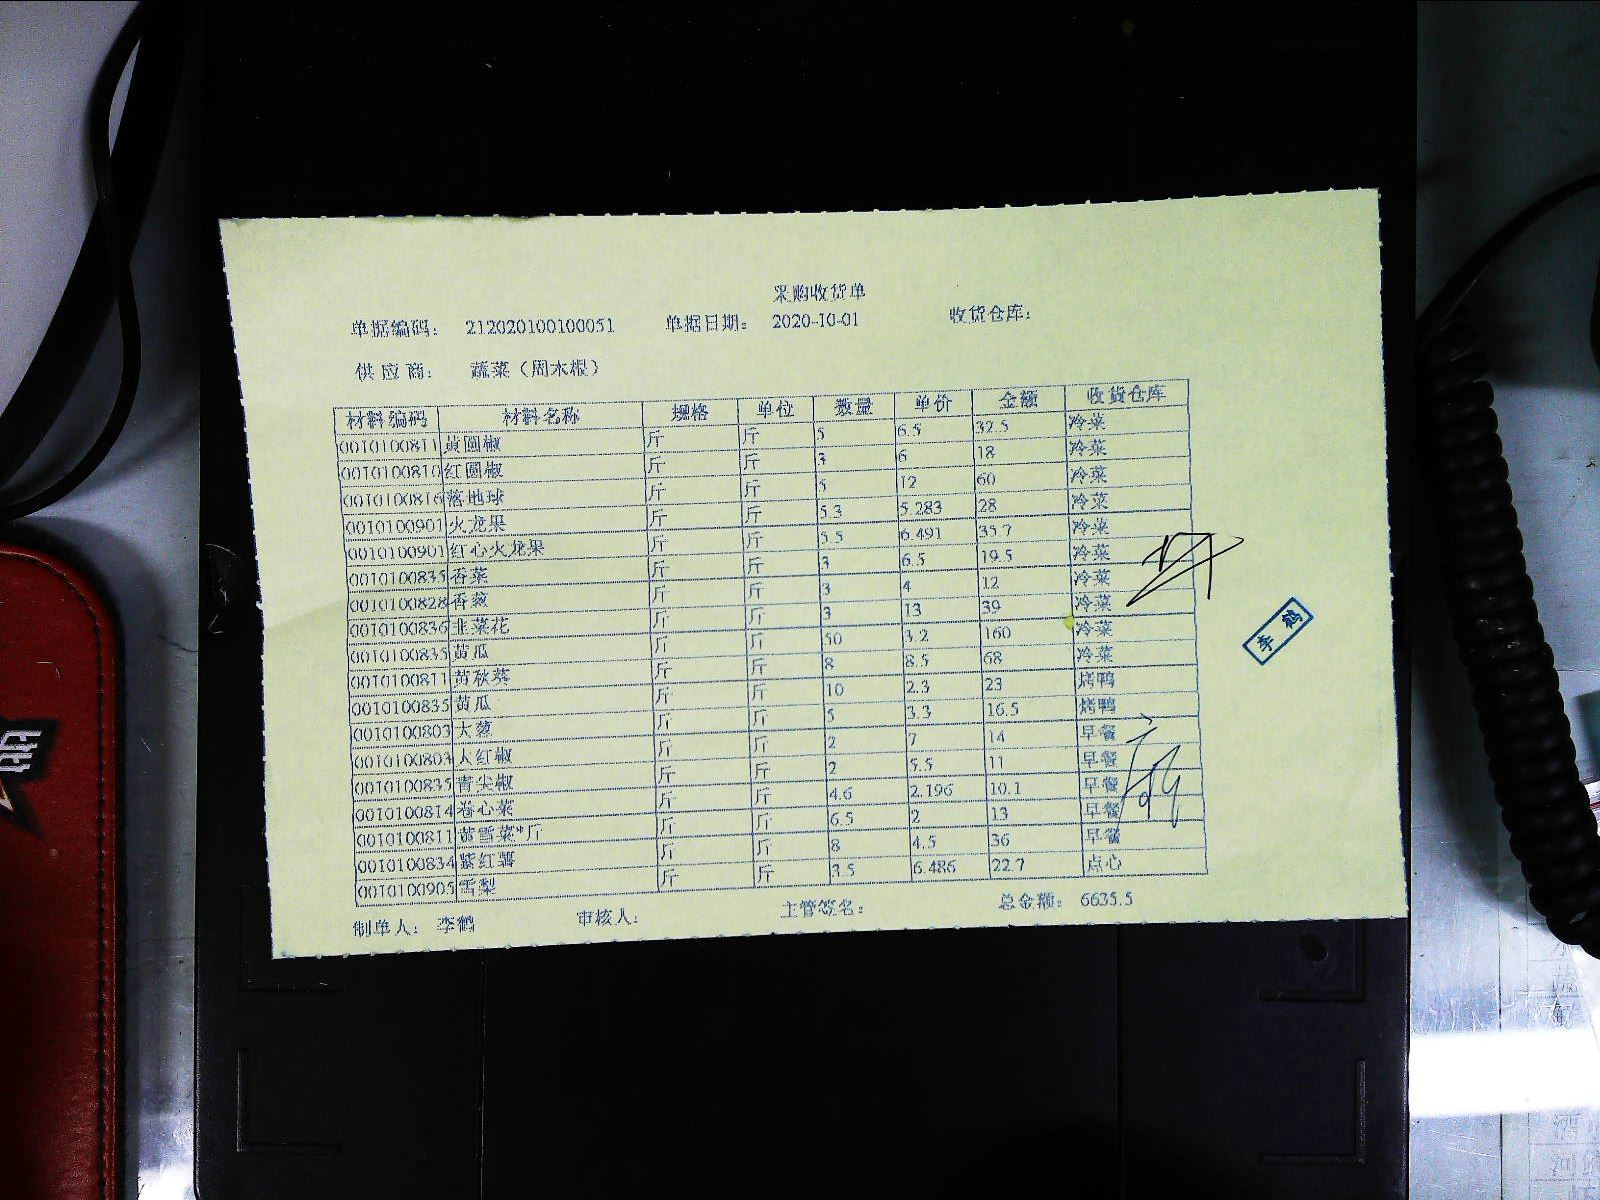 采购收货单
单据编码： 212020100100051 单据日期： 2020-10-01 收货仓库：
供应商： 蔬菜（周木根）
材料编码 材料名称 规格 单位 数量 单价 金额 收货仓库
0010100811 黄圆椒 斤 斤 5 6.5 32.5 冷菜
0010100810 红圆椒 斤 斤 3 6 18 冷菜
0010100816 落地球 斤 斤 5 12 60 冷菜
0010100901 火龙果 斤 斤 5.3 5.283 28 冷菜
0010100901 红心火龙果 斤 斤 5.5 6.491 35.7 冷菜
0010100835 香菜 斤 斤 3 6.5 19.5 冷菜
0010100828 香葱 斤 斤 3 4 12 冷菜
0010100836 韭菜花 斤 斤 3 13 39 冷菜
0010100835 黄瓜 斤 斤 50 3.2 160 冷菜
0010100811 黄秋葵 斤 斤 8 8.5 68 冷菜
0010100835 黄瓜 斤 斤 10 2.3 23 烤鸭
0010100803 大葱 斤 斤 5 3.3 16.5 烤鸭
0010100803 大红椒 斤 斤 2 7 14 早餐
0010100835 青尖椒 斤 斤 2 5.5 11 早餐
0010100814 卷心菜 斤 斤 4.6 2.196 10.1 早餐
0010100811 黄雪菜*斤 斤 斤 6.5 2 13 早餐
0010100834 紫红薯 斤 斤 8 4.5 36 早餐
0010100905 雪梨 斤 斤 3.5 6.486 22.7 点心
制单人： 李鹤 审核人： 主管签名： 总金额： 6635.5
李鹤